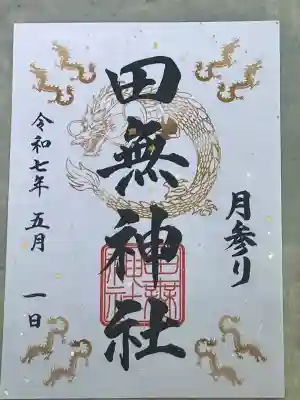 月参り
田無神社
令和七年 五月 一日